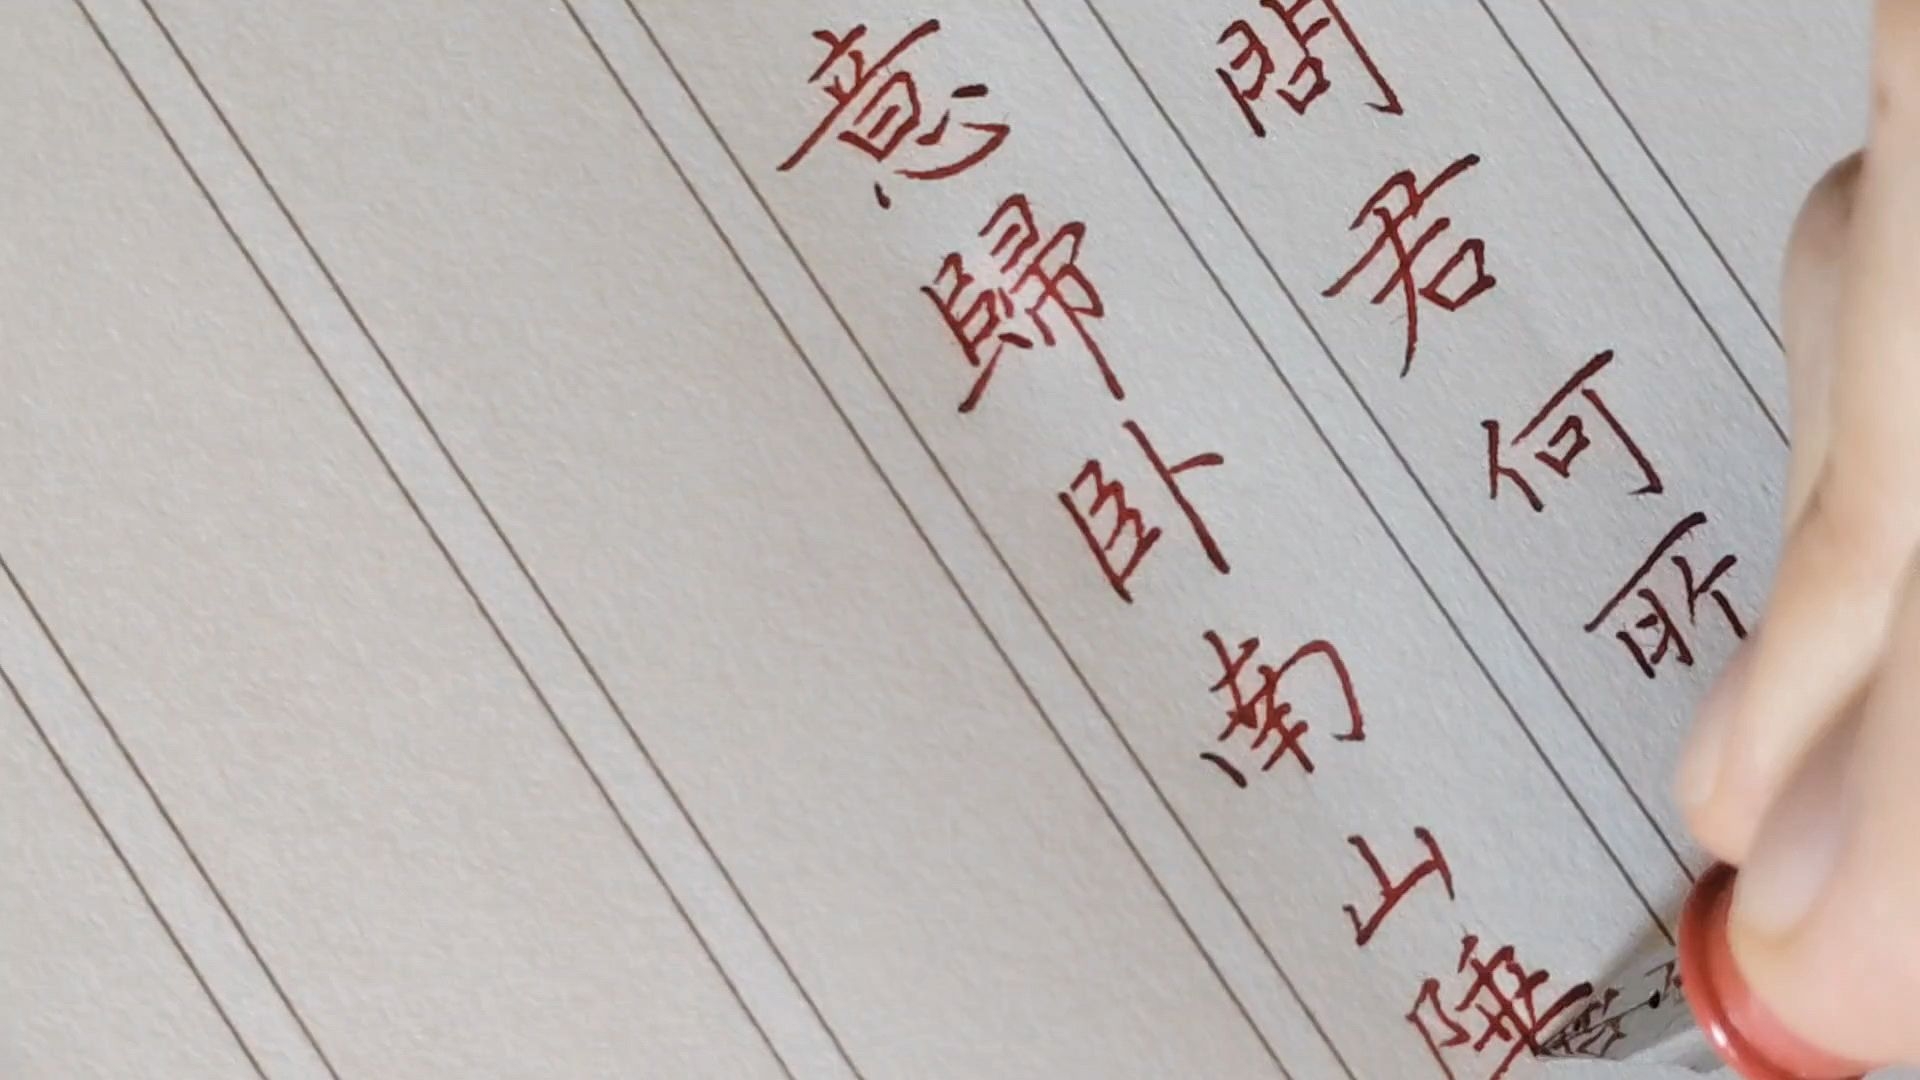 問君何所
意歸卧南山陲